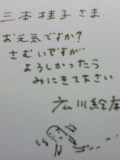 三本桂子さま
お元気ですか?
さむいですが
よろしかったら
みにきて下さい
広川絵麻